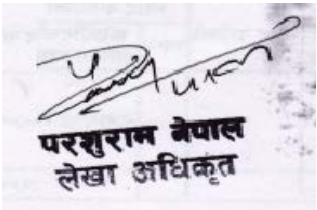 परशुराम नेपाल
लेखा अधिकृत